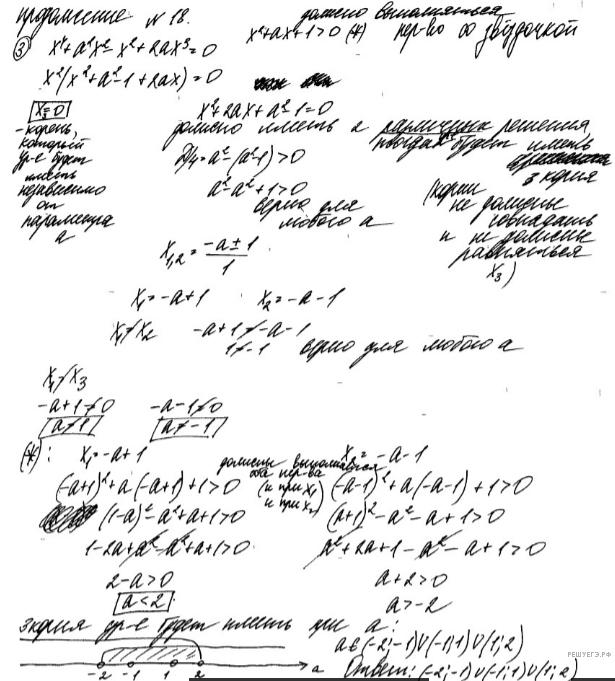 продолжение №18.
③ x⁴+a²x²-x²+2ax³=0
должно выполняться
x²+ax+1>0 (*) нер-во со звёздочкой
x²(x²+a²-1+2ax)=0
x₃=0
- корень, который ур-е будет иметь независимо от параметра a
x²+2ax+a²-1=0
должно иметь 2 различных решения,
тогда будет иметь 3 корня
D/4=a²-(a²-1)>0
a²-a²+1>0
верно для любого a
(корни не должны совпадать и не должны равняться x₃)
x₁,₂=(-a±1)/1
x₁=-a+1 x₂=-a-1
x₁≠x₂ -a+1≠-a-1
1≠-1 верно для любого a
x₁≠x₃
-a+1≠0 -a-1≠0
a≠1 a≠-1
(*): x₁=-a+1 x₂=-a-1
должны выполняться оба нер-ва
(и при x₁ и при x₂)
(-a+1)²+a(-a+1)+1>0 (-a-1)²+a(-a-1)+1>0
(1-a)²-a²+a+1>0 (a+1)²-a²-a+1>0
1-2a+a²-a²+a+1>0 a²+2a+1-a²-a+1>0
2-a>0 a+2>0
a<2 a>-2
3 корня ур-е будет иметь при a:
a∈(-2;-1)∪(-1;1)∪(1;2)
-2 -1 1 2 a
Ответ: (-2;-1)∪(-1;1)∪(1;2)
РЕШУЕГЭ.РФ